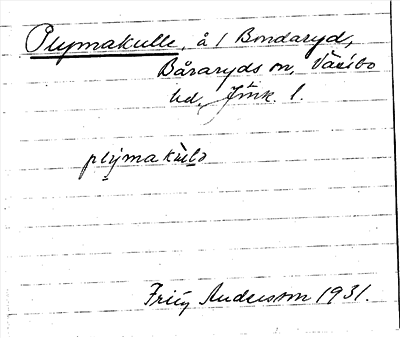 Plymakulle, å 1 Bondaryd,
Båraryds sn, Västbo
hd, Jönk. l.
plỳmakùlə
Frity Andersson 1931.